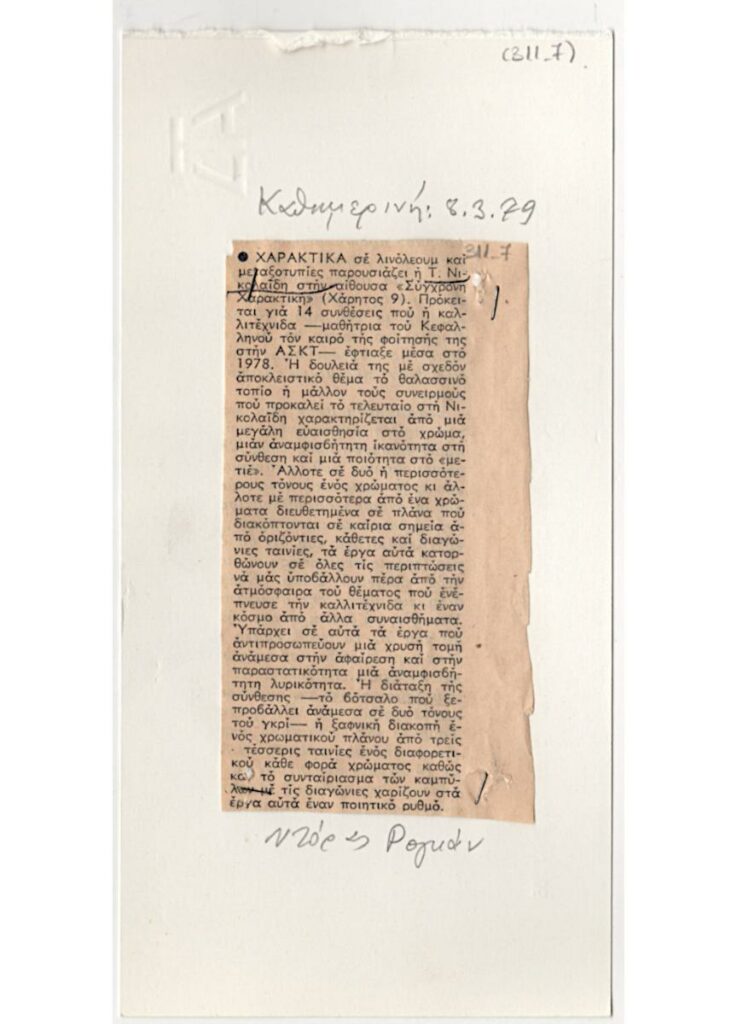 (311_7)
Καθημερινή: 8.3.79
311_7
● ΧΑΡΑΚΤΙΚΑ σέ λινόλεουμ καί
μεταξοτυπίες παρουσιάζει ἡ Τ. Νι-
κολαΐδη στήν αἴθουσα «Σύγχρονη
Χαρακτική» (Χάρητος 9). Πρόκει-
ται γιά 14 συνθέσεις πού ἡ καλ-
λιτέχνιδα —μαθήτρια τοῦ Κεφαλ-
ληνοῦ τόν καιρό τῆς φοίτησής της
στήν ΑΣΚΤ— ἔφτιαξε μέσα στό
1978. Ἡ δουλειά της μέ σχεδόν
ἀποκλειστικό θέμα τό θαλασσινό
τοπίο ἤ μᾶλλον τούς συνειρμούς
πού προκαλεῖ τό τελευταῖο στή Νι-
κολαΐδη χαρακτηρίζεται ἀπό μιά
μεγάλη εὐαισθησία στό χρῶμα,
μιάν ἀναμφισβήτητη ἱκανότητα στή
σύνθεση καί μιά ποιότητα στό «με-
τιέ». Ἄλλοτε σέ δυό ἤ περισσότε-
ρους τόνους ἑνός χρώματος κι ἄλ-
λοτε μέ περισσότερα ἀπό ἕνα χρώ-
ματα διευθετημένα σέ πλάνα πού
διακόπτονται σέ καίρια σημεῖα ἀ-
πό ὁριζόντιες, κάθετες καί διαγώ-
νιες ταινίες, τά ἔργα αὐτά κατορ-
θώνουν σέ ὅλες τίς περιπτώσεις
νά μᾶς ὑποβάλλουν πέρα ἀπό τήν
ἀτμόσφαιρα τοῦ θέματος πού ἐνέ-
πνευσε τήν καλλιτέχνιδα κι ἕναν
κόσμο ἀπό ἄλλα συναισθήματα.
Ὑπάρχει σέ αὐτά τά ἔργα πού
ἀντιπροσωπεύουν μιά χρυσή τομή
ἀνάμεσα στήν ἀφαίρεση καί στήν
παραστατικότητα μιά ἀναμφισβή-
τητη λυρικότητα. Ἡ διάταξη τῆς
σύνθεσης —τό βότσαλο πού ξε-
προβάλλει ἀνάμεσα σέ δυό τόνους
τοῦ γκρί— ἡ ξαφνική διακοπή ἑ-
νός χρωματικοῦ πλάνου ἀπό τρεῖς
τέσσερις ταινίες ἑνός διαφορετι-
κοῦ κάθε φορά χρώματος καθώς
καί τό συνταίριασμα τῶν καμπύ-
λων μέ τίς διαγώνιες χαρίζουν στά
ἔργα αὐτά ἕναν ποιητικό ρυθμό.
Ντόρα Ρογκάν